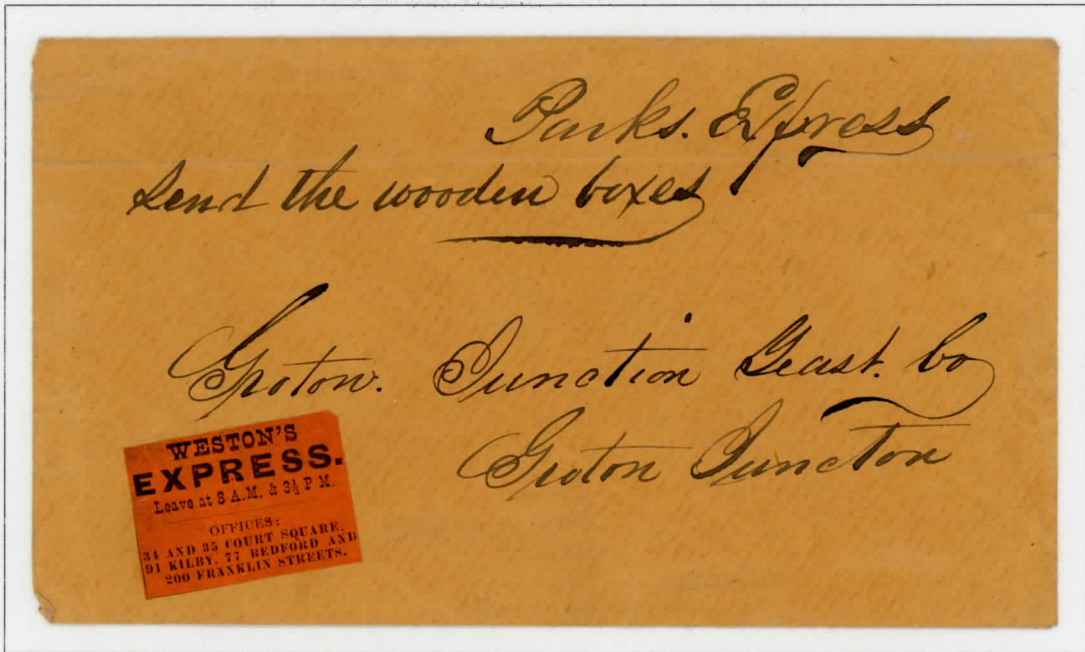 Parks. Express
send the wooden boxes
Groton. Junction Yeast. Co
Groton Juncton
WESTON'S
EXPRESS.
Leave at 8 A.M. & 3½ P M.
OFFICES:
34 AND 35 COURT SQUARE,
91 KILBY, 77 BEDFORD AND
200 FRANKLIN STREETS.